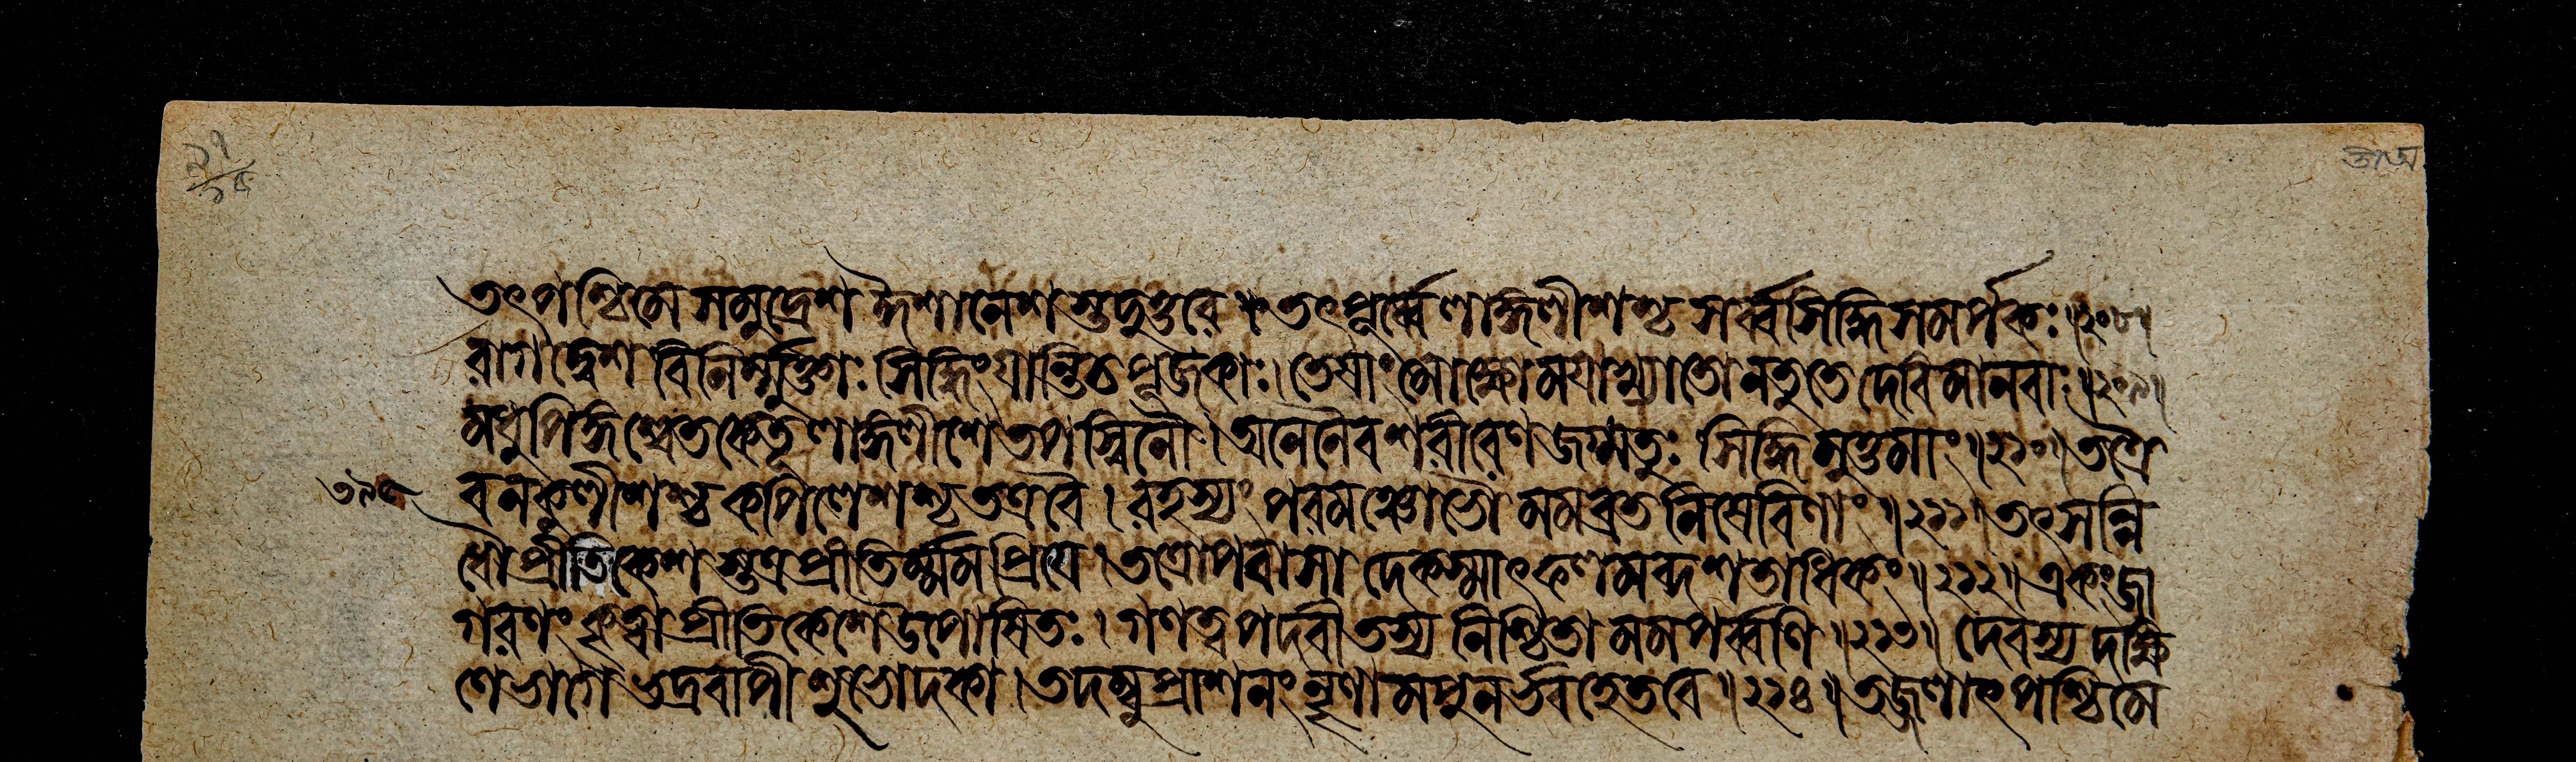 তৎপশ্চিমে সমুদ্রেশ ঈশানেশস্তদুত্তরে । তৎপূর্ব্বে লাঙ্গলীশশ্চ সর্ব্বসিদ্ধিসমর্পকঃ ॥ ২০৮ ॥
রাগদ্বেশ বিনির্ম্মুক্তাঃ সিদ্ধিং যান্তি চ পূজকাঃ । তেষাং মোক্ষো ময়াখ্যাতো নতু তে দেবি মানবাঃ ॥ ২০৯ ॥
মধুপিঙ্গশ্বেতকেতূ লাঙ্গলীশে তপস্বিনৌ । অনেনৈব শরীরেণ জগ্মতুঃ সিদ্ধিমুত্তমাং ॥ ২১০ ॥ তত্রৈ
ব নকুলীশশ্চ কপিলেশশ্চ তত্র বৈ । রহস্যং পরমঞ্চোভৌ মম ব্রত নিষেবিণাং ॥ ২১১ ॥ তৎসন্নি
ধৌ প্রীতিকেশস্তত্র প্রীতির্ম্মম প্রিয়ে । তত্রোপবাসাদেকস্মাৎ ফলমব্দশতাধিকং ॥ ২১২ ॥ একং জা
গরণং কৃত্বা প্রীতিকেশে উপোষিতঃ । গণত্বপদবী তস্য নিশ্চিতা মম পর্ব্বণি ॥ ২১৩ ॥ দেবস্য দক্ষি
ণে ভাগে ভদ্রবাপী শুভোদকা । তদম্বুপ্রাশনং নৃণামপুনর্ভবহেতবে ॥ ২১৪ ॥ তজ্জলাৎ পশ্চিমে